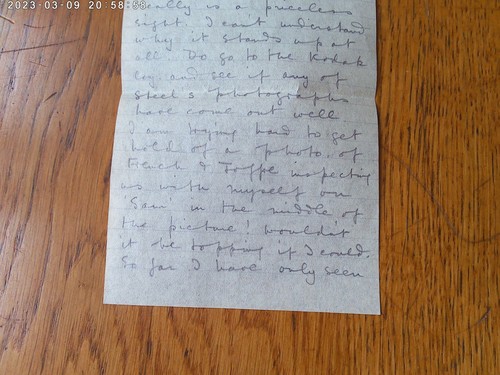 2023-03-09 20:58:58
really is a priceless
sight. I can't understand
why it stands up at
all. Do go to the Kodak
Coy and see if any of
Steel's photographs
have come out well
I am trying hard to get
hold of a photo. of
French & Joffre inspecting
us with myself on
'Sam' in the middle of
the picture! wouldn't
it be topping if I could.
So far I have only seen